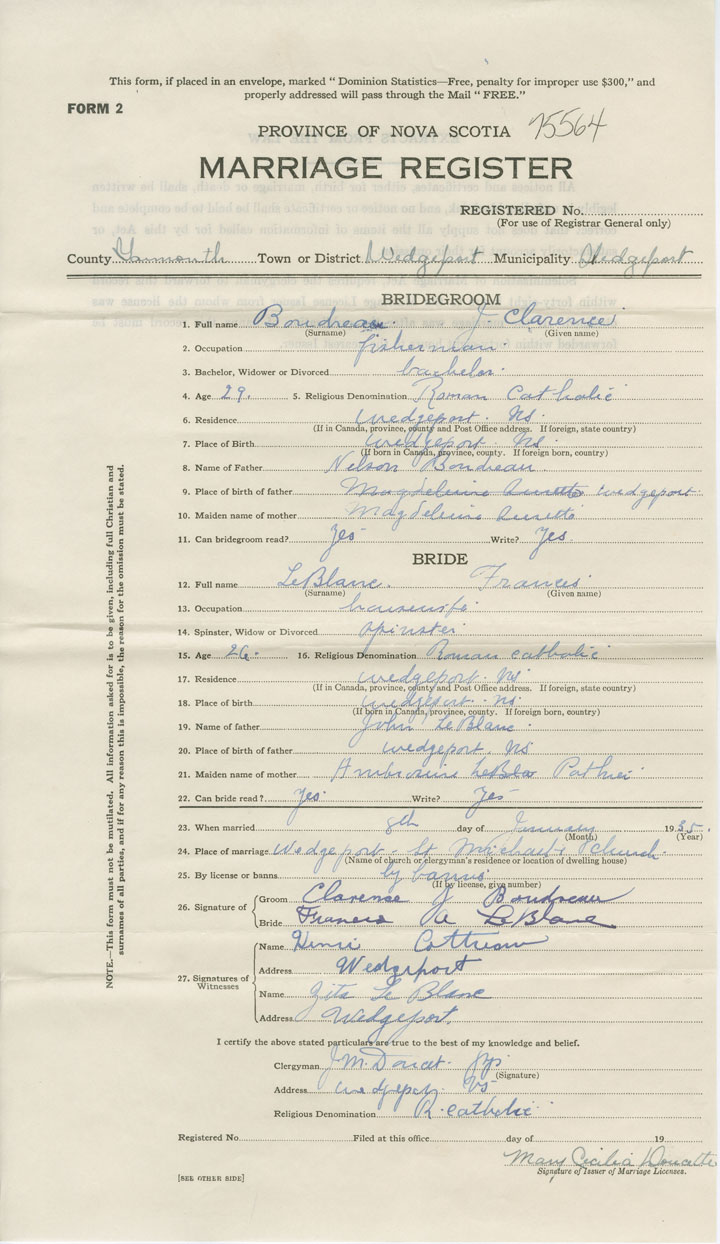 This form, if placed in an envelope, marked “ Dominion Statistics—Free, penalty for improper use $300,” and
properly addressed will pass through the Mail “ FREE.”
FORM 2
PROVINCE OF NOVA SCOTIA 75564
MARRIAGE REGISTER
REGISTERED No.
(For use of Registrar General only)
County Yarmouth Town or District Wedgeport Municipality Wedgeport
BRIDEGROOM
1. Full name Boudreau J. Clarence
(Surname) (Given name)
2. Occupation fisherman
3. Bachelor, Widower or Divorced bachelor
4. Age 29. 5. Religious Denomination Roman Catholic
6. Residence wedgeport. Ns.
(If in Canada, province, county and Post Office address. If foreign, state country)
7. Place of Birth wedgeport. Ns.
(If born in Canada, province, county. If foreign born, country)
8. Name of Father Nelson Boudreau
9. Place of birth of father wedgeport
10. Maiden name of mother
11. Can bridegroom read? Yes Write? Yes
BRIDE
12. Full name LeBlanc Frances
(Surname) (Given name)
13. Occupation housewife
14. Spinster, Widow or Divorced spinster
15. Age 26. 16. Religious Denomination Roman catholic
17. Residence wedgeport. Ns.
(If in Canada, province, county and Post Office address. If foreign, state country)
18. Place of birth wedgeport. ns.
(If born in Canada, province, county. If foreign born, country)
19. Name of father John LeBlanc
20. Place of birth of father wedgeport. Ns
21. Maiden name of mother Pothier
22. Can bride read? Yes Write? Yes
23. When married 8th day of January 1935.
(Month) (Year)
24. Place of marriage Wedgeport - St Michael's church.
(Name of church or clergyman's residence or location of dwelling house)
25. By license or banns by banns
(If by license, give number)
26. Signature of Groom Clarence J Boudreau
Bride Frances LeBlanc
27. Signatures of Witnesses
Name Henri
Address Wedgeport
Name Zita Le Blanc
Address Wedgeport.
I certify the above stated particulars are true to the best of my knowledge and belief.
Clergyman J.M. Doucet
(Signature)
Address wedgeport Ns
Religious Denomination R. catholic
Registered No. Filed at this office day of 19
Mary Cecilia Doucette
Signature of Issuer of Marriage Licenses.
[SEE OTHER SIDE]
NOTE.—This form must not be mutilated. All information asked for is to be given, including full Christian and
surnames of all parties, and if for any reason this is impossible, the reason for the omission must be stated.